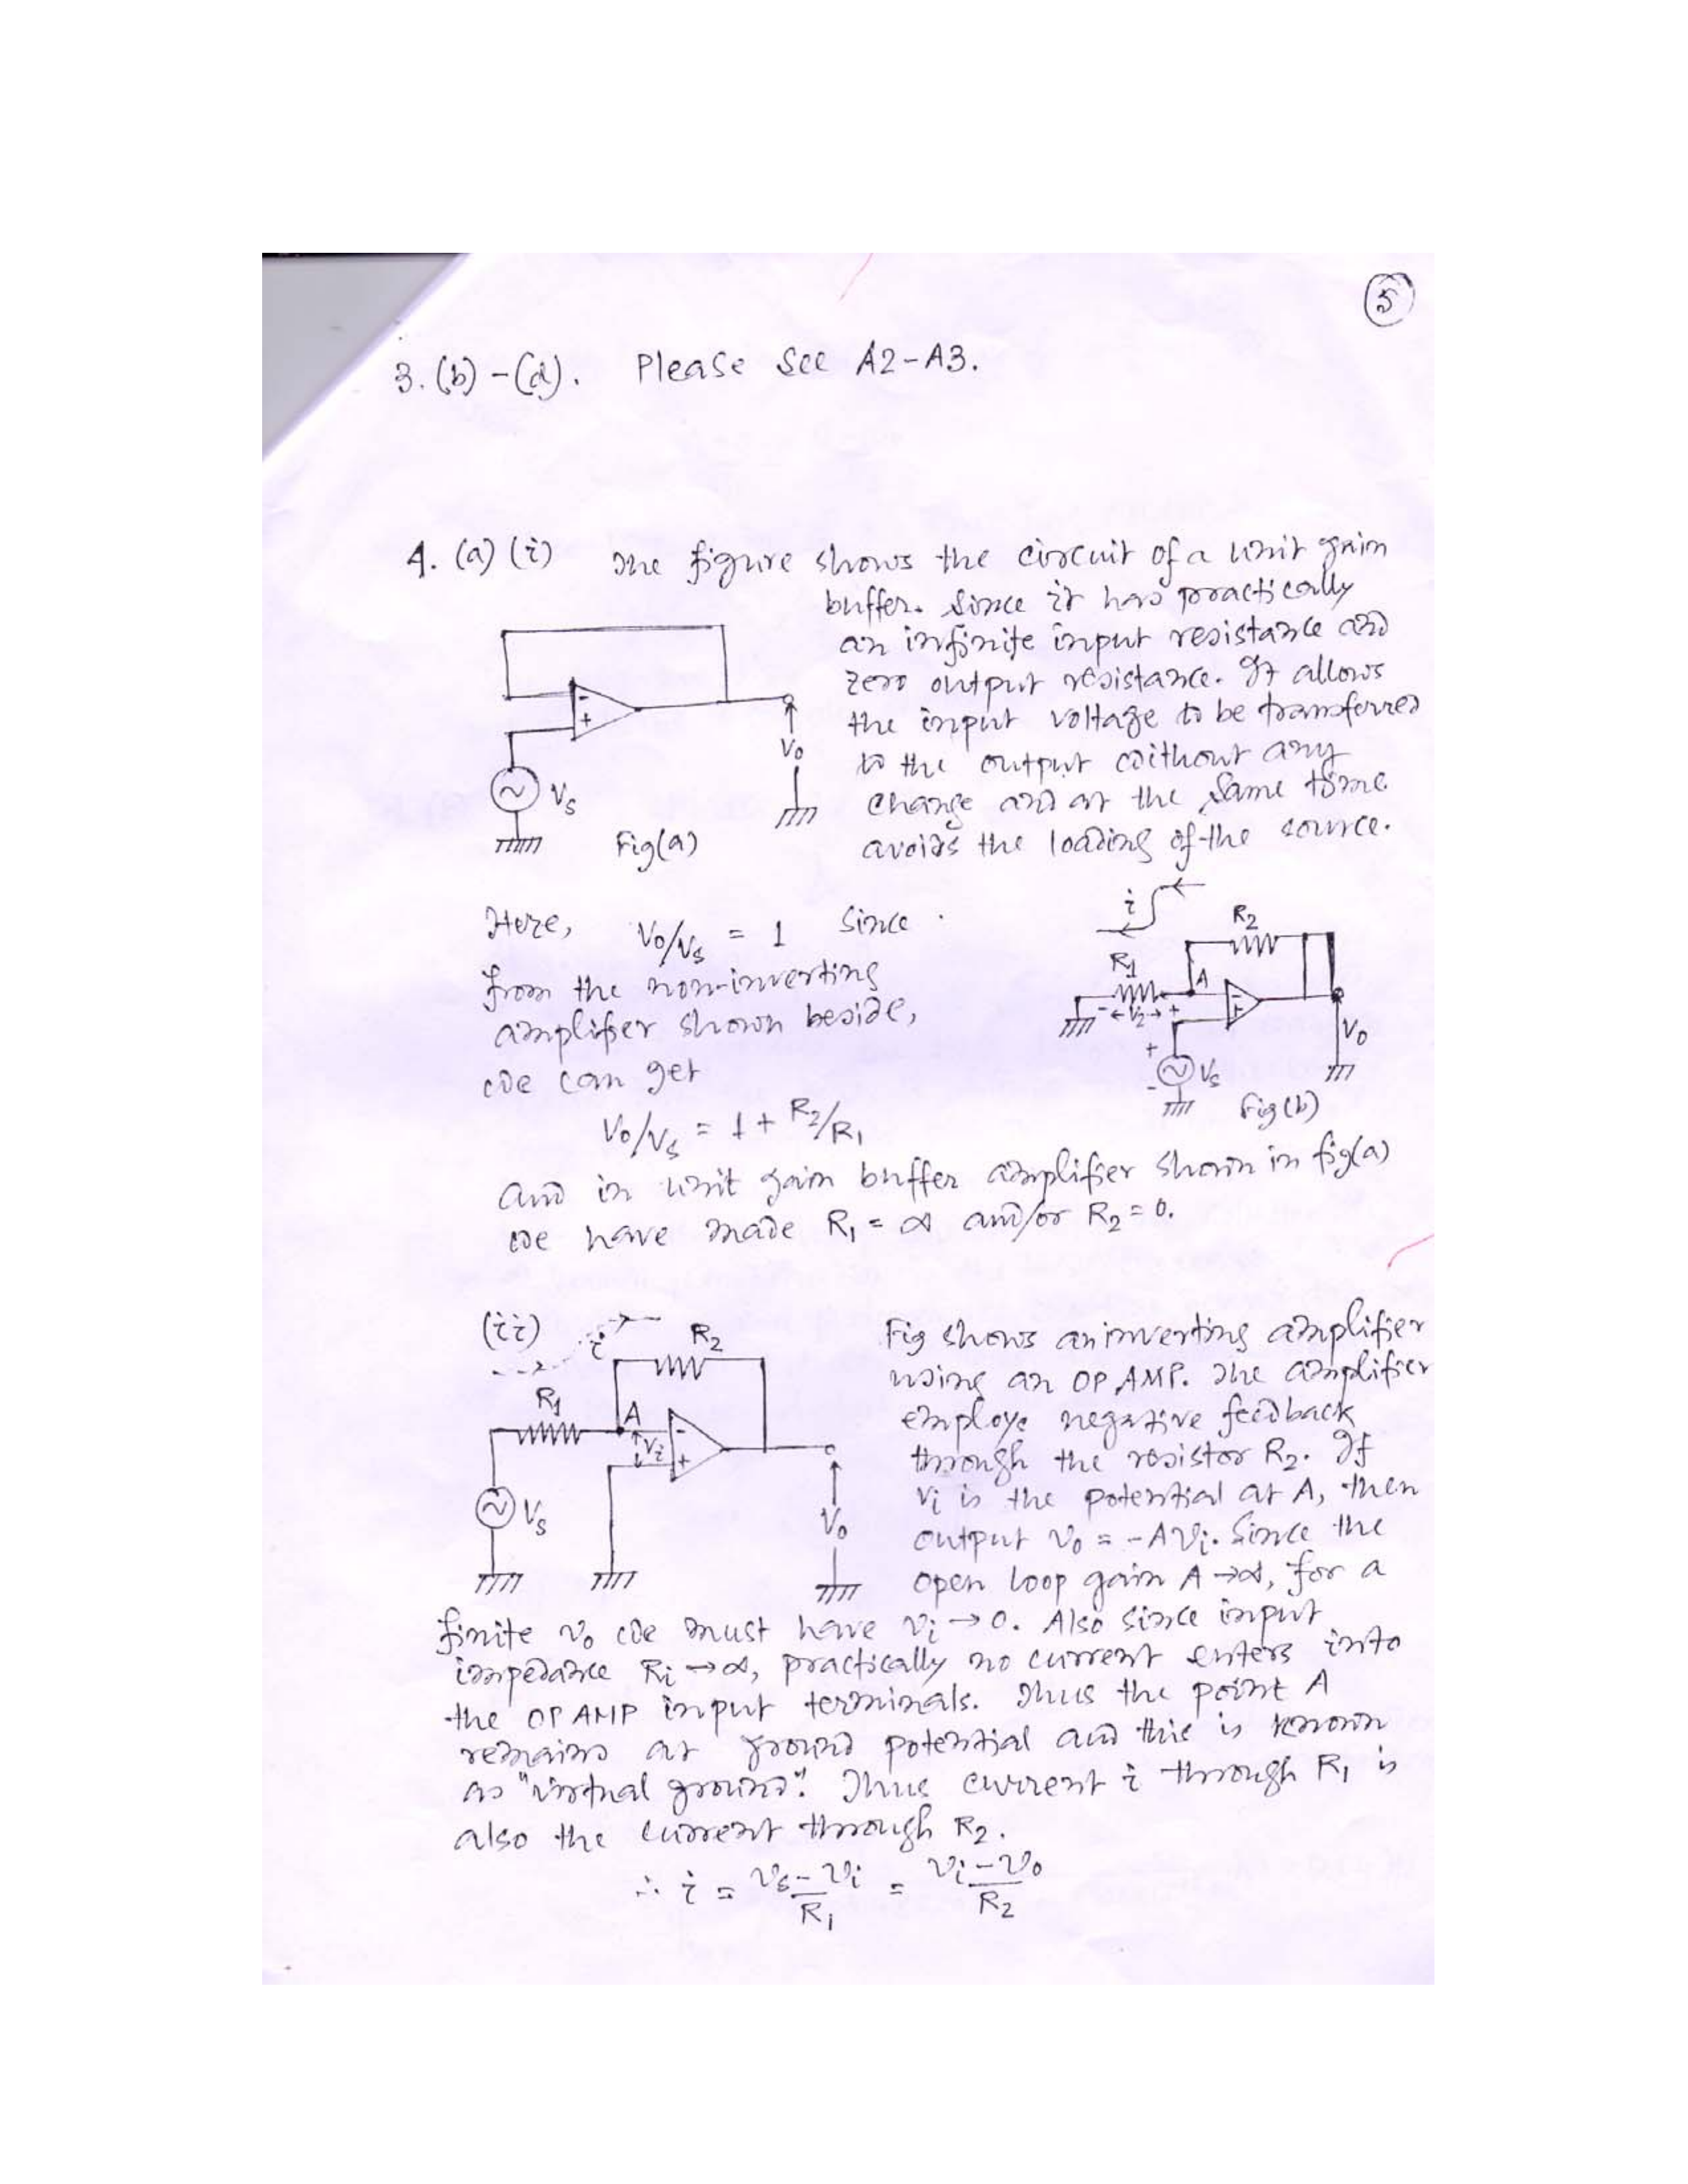 5
3. (b) - (d). Please See A2-A3.
4. (a) (i) The figure shows the circuit of a unit gain
buffer. Since it has practically
an infinite input resistance and
zero output resistance. It allows
the input voltage to be transferred
to the output without any
change and at the same time
avoids the loading of the source.
-
+
Vo
~ Vs
Fig(a)
Here, Vo/Vs = 1 Since
from the non-inverting
amplifier shown beside,
we can get
Vo/Vs = 1 + R2/R1
i
R2
R1
A
- ← V2 → +
-
+
Vo
+
~ Vs
-
Fig(b)
and in unit gain buffer amplifier shown in fig(a)
we have made R1 = ∞ and/or R2 = 0.
(ii)
i
R2
R1
A
Vi
-
+
~ Vs
Vo
Fig shows an inverting amplifier
using an OP AMP. The amplifier
employs negative feedback
through the resistor R2. If
Vi is the potential at A, then
output vo = -Avi. Since the
open loop gain A → ∞, for a
finite vo we must have vi → 0. Also since input
impedance Ri → ∞, practically no current enters into
the OP AMP input terminals. Thus the point A
remains at ground potential and this is known
as "virtual ground". Thus current i through R1 is
also the current through R2.
∴ i = vs - vi / R1 = vi - vo / R2